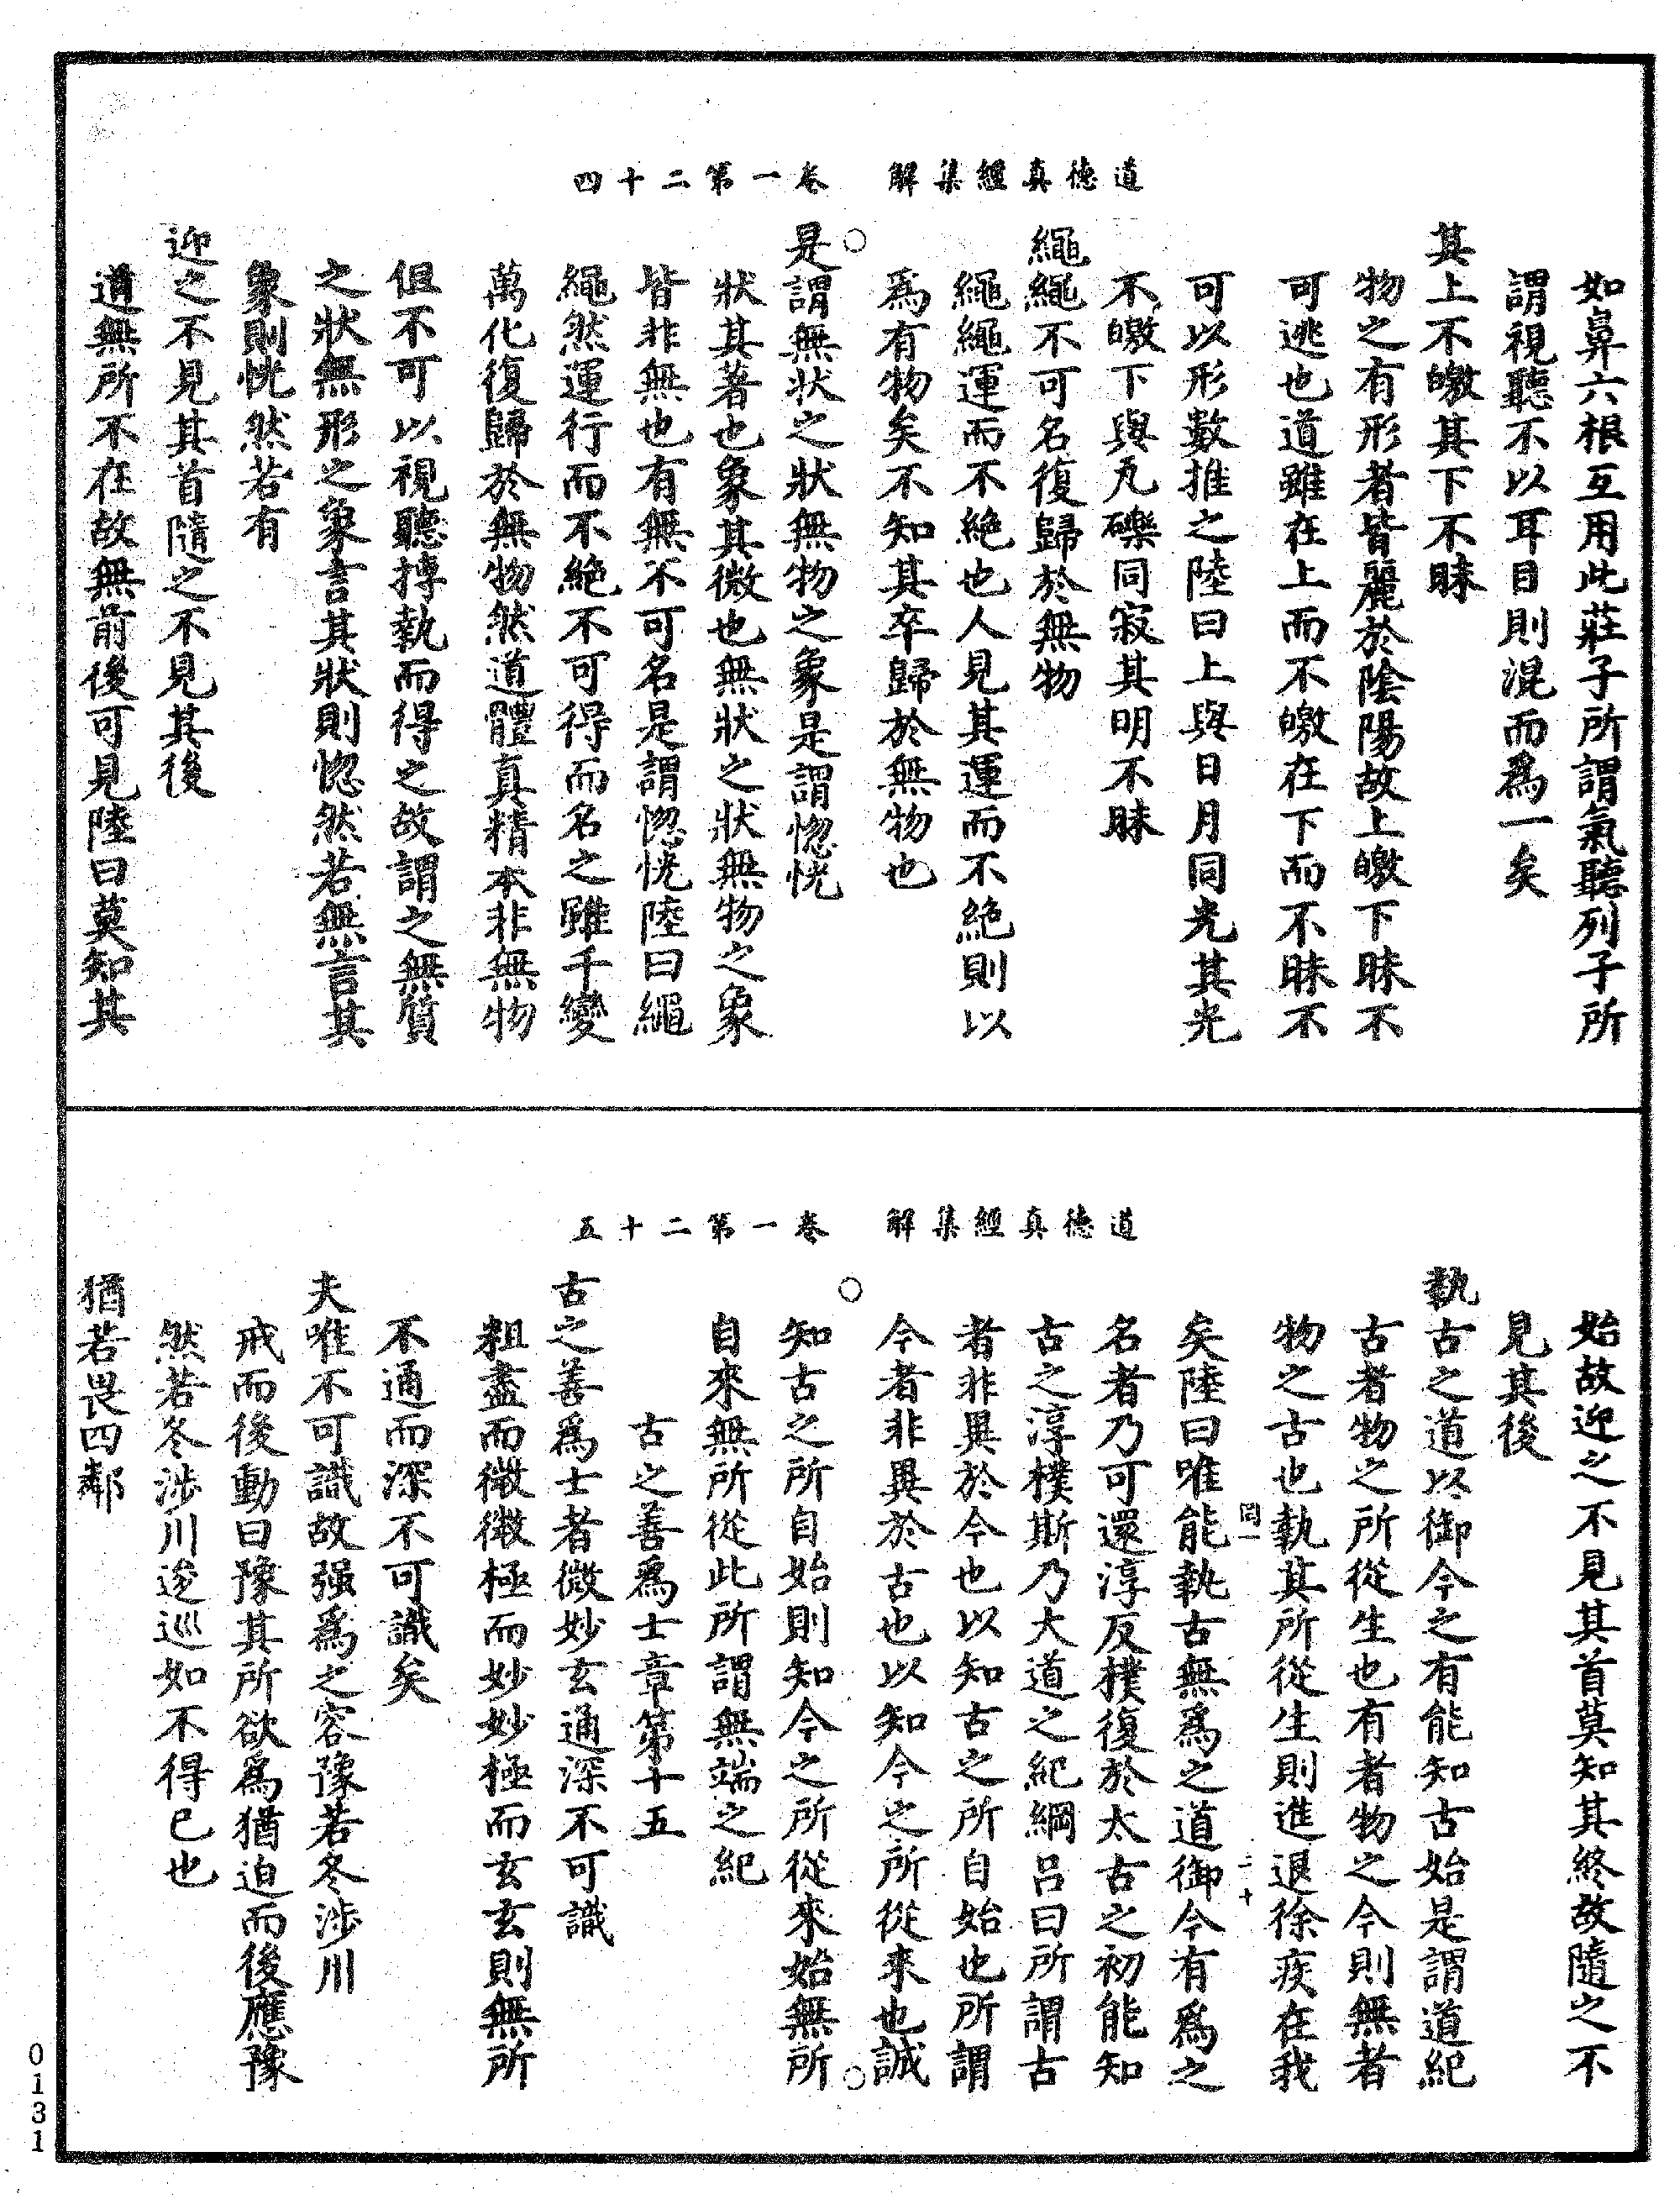 道德真經集解　卷一第二十四
如鼻六根互用此莊子所謂氣聽列子所
謂視聽不以耳目則混而爲一矣
其上不皦其下不昧
物之有形者皆麗於陰陽故上皦下昧不
可逃也道雖在上而不皦在下而不昧不
可以形數推之陸曰上與日月同光其光
不皦下與瓦礫同寂其明不昧
繩繩不可名復歸於無物
繩繩運而不絶也人見其運而不絶則以
爲有物矣不知其卒歸於無物也
是謂無狀之狀無物之象是謂惚恍
狀其著也象其微也無狀之狀無物之象
皆非無也有無不可名是謂惚恍陸曰繩
繩然運行而不絶不可得而名之雖千變
萬化復歸於無物然道體真精本非無物
但不可以視聽摶執而得之故謂之無質
之狀無形之象言其狀則惚然若無言其
象則恍然若有
迎之不見其首隨之不見其後
道無所不在故無前後可見陸曰莫知其
道德真經集解　卷一第二十五
始故迎之不見其首莫知其終故隨之不
見其後
執古之道以御今之有能知古始是謂道紀
古者物之所從生也有者物之今則無者
物之古也執其所從生則進退徐疾在我
矣陸曰唯能執古無爲之道御今有爲之
名者乃可還淳反樸復於太古之初能知
古之淳樸斯乃大道之紀綱呂曰所謂古
者非異於今也以知古之所自始也所謂
今者非異於古也以知今之所從來也誠
知古之所自始則知今之所從來始無所
自來無所從此所謂無端之紀
古之善爲士章第十五
古之善爲士者微妙玄通深不可識
粗盡而微微極而妙妙極而玄玄則無所
不通而深不可識矣
夫唯不可識故强爲之容豫若冬涉川
戒而後動曰豫其所欲爲猶迫而後應豫
然若冬涉川逡巡如不得已也
猶若畏四鄰
0131